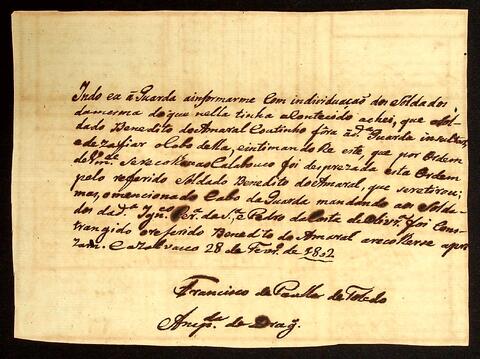 Indo eu á Guarda ainformarme Com individuação dos Soldados
damesma do que nella tinha acontecido achei, que o Sol-
dado Benedito do Amaral Coutinho fôra á d.ª Guarda insultar,
e dezafiar o Cabo della, eintimando lhe este, que por Ordem
de se recolhese ao Calabouço foi desprezada esta Ordem
pelo referido Soldado Benedito do Amaral, que seretirou;
mas, omencionado Cabo da Guarda mandando aos Solda-
dos dad.ª Ign.º da S.ª e Pedro da Costa de Olivr.ª foi Cons-
trangido oreferido Benedito do Amaral arecolherse apri-
zam. Cazalvasco 28 de Fevr.º de 1802
Francisco de Paulla de Toledo
de Drag.